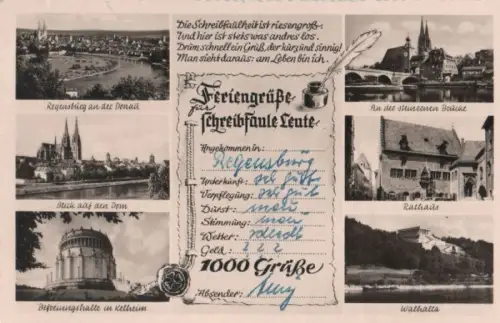 Die Schreibfaulheit ist riesengroß –
Und hier ist stets was andres los.
Drum schnell ein Gruß, der kurz und sinnig!
Man sieht daraus: am Leben bin ich.
Feriengrüße
für
schreibfaule Leute
Angekommen in:
Regensburg
Unterkunft: sehr gut
Verpflegung: sehr gut
Durst:
Stimmung:
Wetter: schlecht
Geld: ? ? ?
1000 Grüße
Absender:
Regensburg an der Donau
Blick auf den Dom
Befreiungshalle in Kelheim
An der steinernen Brücke
Rathaus
Walhalla